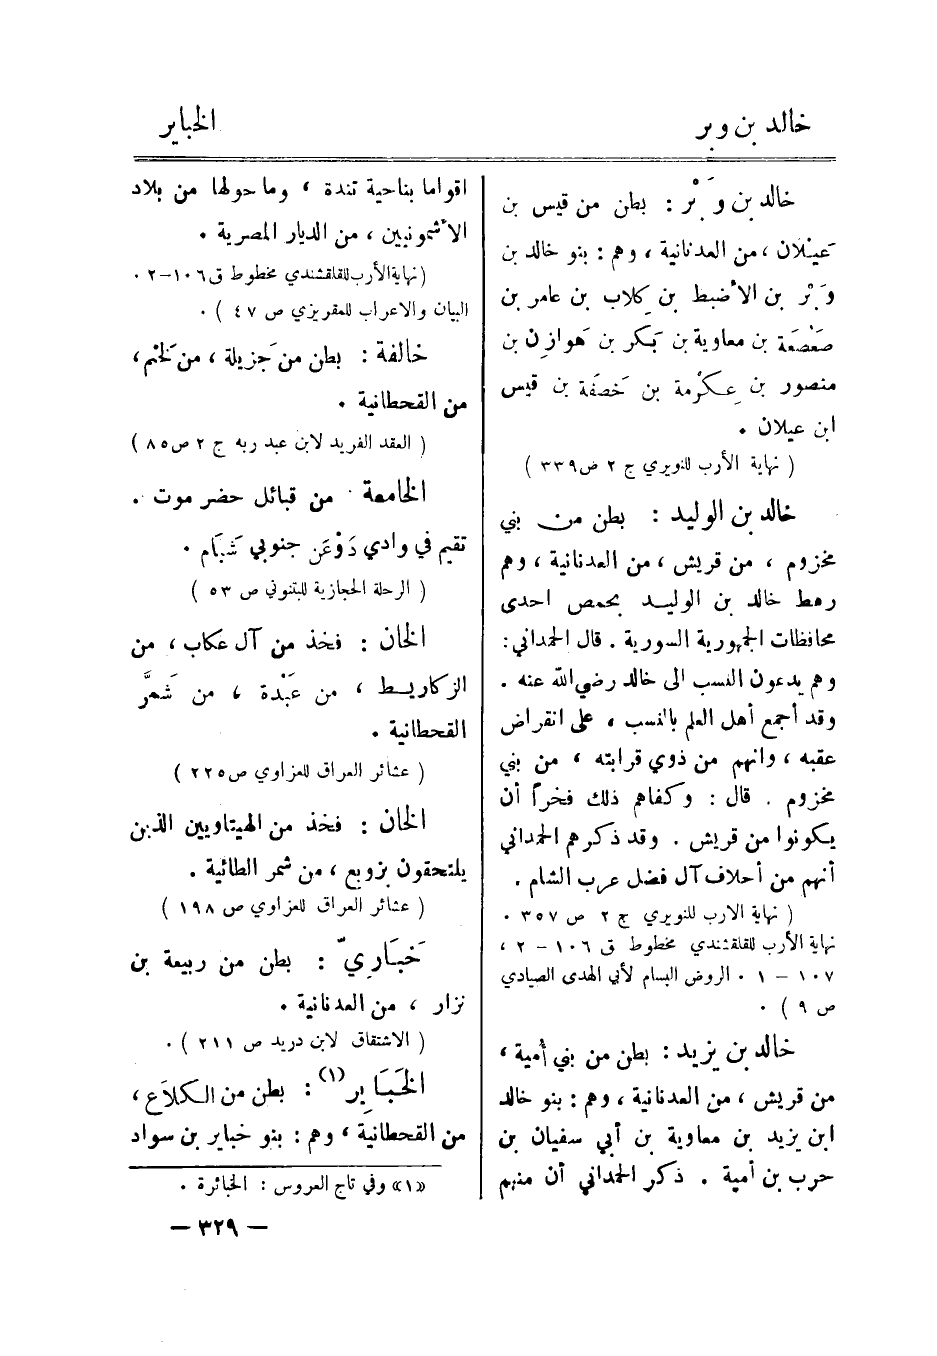 خالد بن وبر
الخباير
خالد بن وَبْر : بطن من قيس بن
عَيْلان ، من العدنانية ، وهم : بنو خالد بن
وَبْر بن الأضبط بن كلاب بن عامر بن
صَعْصَعَة بن معاوية بن بَكر بن هَوازِن بن
منصور بن عِكْرمة بن خَصَفَة بن قيس
ابن عيلان .
( نهاية الأرب للنويري ج ٢ ص ٣٣٩ )
خالد بن الوليد : بطن من بني
مخزوم ، من قريش ، من العدنانية ، وهم
رهط خالد بن الوليد بحمص احدى
محافظات الجمهورية السورية . قال الحمداني :
وهم يدعون النسب الى خالد رضي الله عنه .
وقد أجمع أهل العلم بالنسب ، على انقراض
عقبه ، وانهم من ذوي قرابته ، من بني
مخزوم . قال : وكفاهم ذلك فخراً أن
يكونوا من قريش . وقد ذكرهم الحمداني
أنهم من أحلاف آل فضل عرب الشام .
( نهاية الارب للنويري ج ٢ ص ٣٥٧ .
نهاية الأرب للقلقشندي مخطوط ق ١٠٦ – ٢ ،
١٠٧ – ١ . الروض البسام لأبي الهدى الصيادي
ص ٩ ) .
خالد بن يزيد : بطن من بني أُمية ،
من قريش ، من العدنانية ، وهم : بنو خالد
ابن يزيد بن معاوية بن أبي سفيان بن
حرب بن أمية . ذكر الحمداني أن منهم
اقواما بناحية تندة ، وما حولها من بلاد
الأشمونيين ، من الديار المصرية .
(نهاية الأرب للقلقشندي مخطوط ق ١٠٦–٢ .
البيان والاعراب للمقريزي ص ٤٧ ) .
خالفة : بطن من جَزيلة ، من لَخْم ،
من القحطانية .
( العقد الفريد لابن عبد ربه ج ٢ ص ٨٥ )
الخامعة من قبائل حضر موت .
تقيم في وادي دَوْعَن جنوبي شَبَام .
( الرحلة الحجازية للبتنوني ص ٥٣ )
الخان : فخذ من آل عكاب ، من
الزكاريط ، من عَبْدة ، من شَمَّر
القحطانية .
( عشائر العراق للعزاوي ص ٢٢٥ )
الخان : فخذ من الهيتاويين الذين
يلتحقون بزوبع ، من شمر الطائية .
( عشائر العراق للعزاوي ص ١٩٨ )
خَبَارِيّ : بطن من ربيعة بن
نزار ، من العدنانية .
( الاشتقاق لابن دريد ص ٢١١ ) .
الخَبَايِر (١) : بطن من الكلاَع ،
من القحطانية ، وهم : بنو خباير بن سواد
«١» وفي تاج العروس : الخبائرة .
— ٣٢٩ —